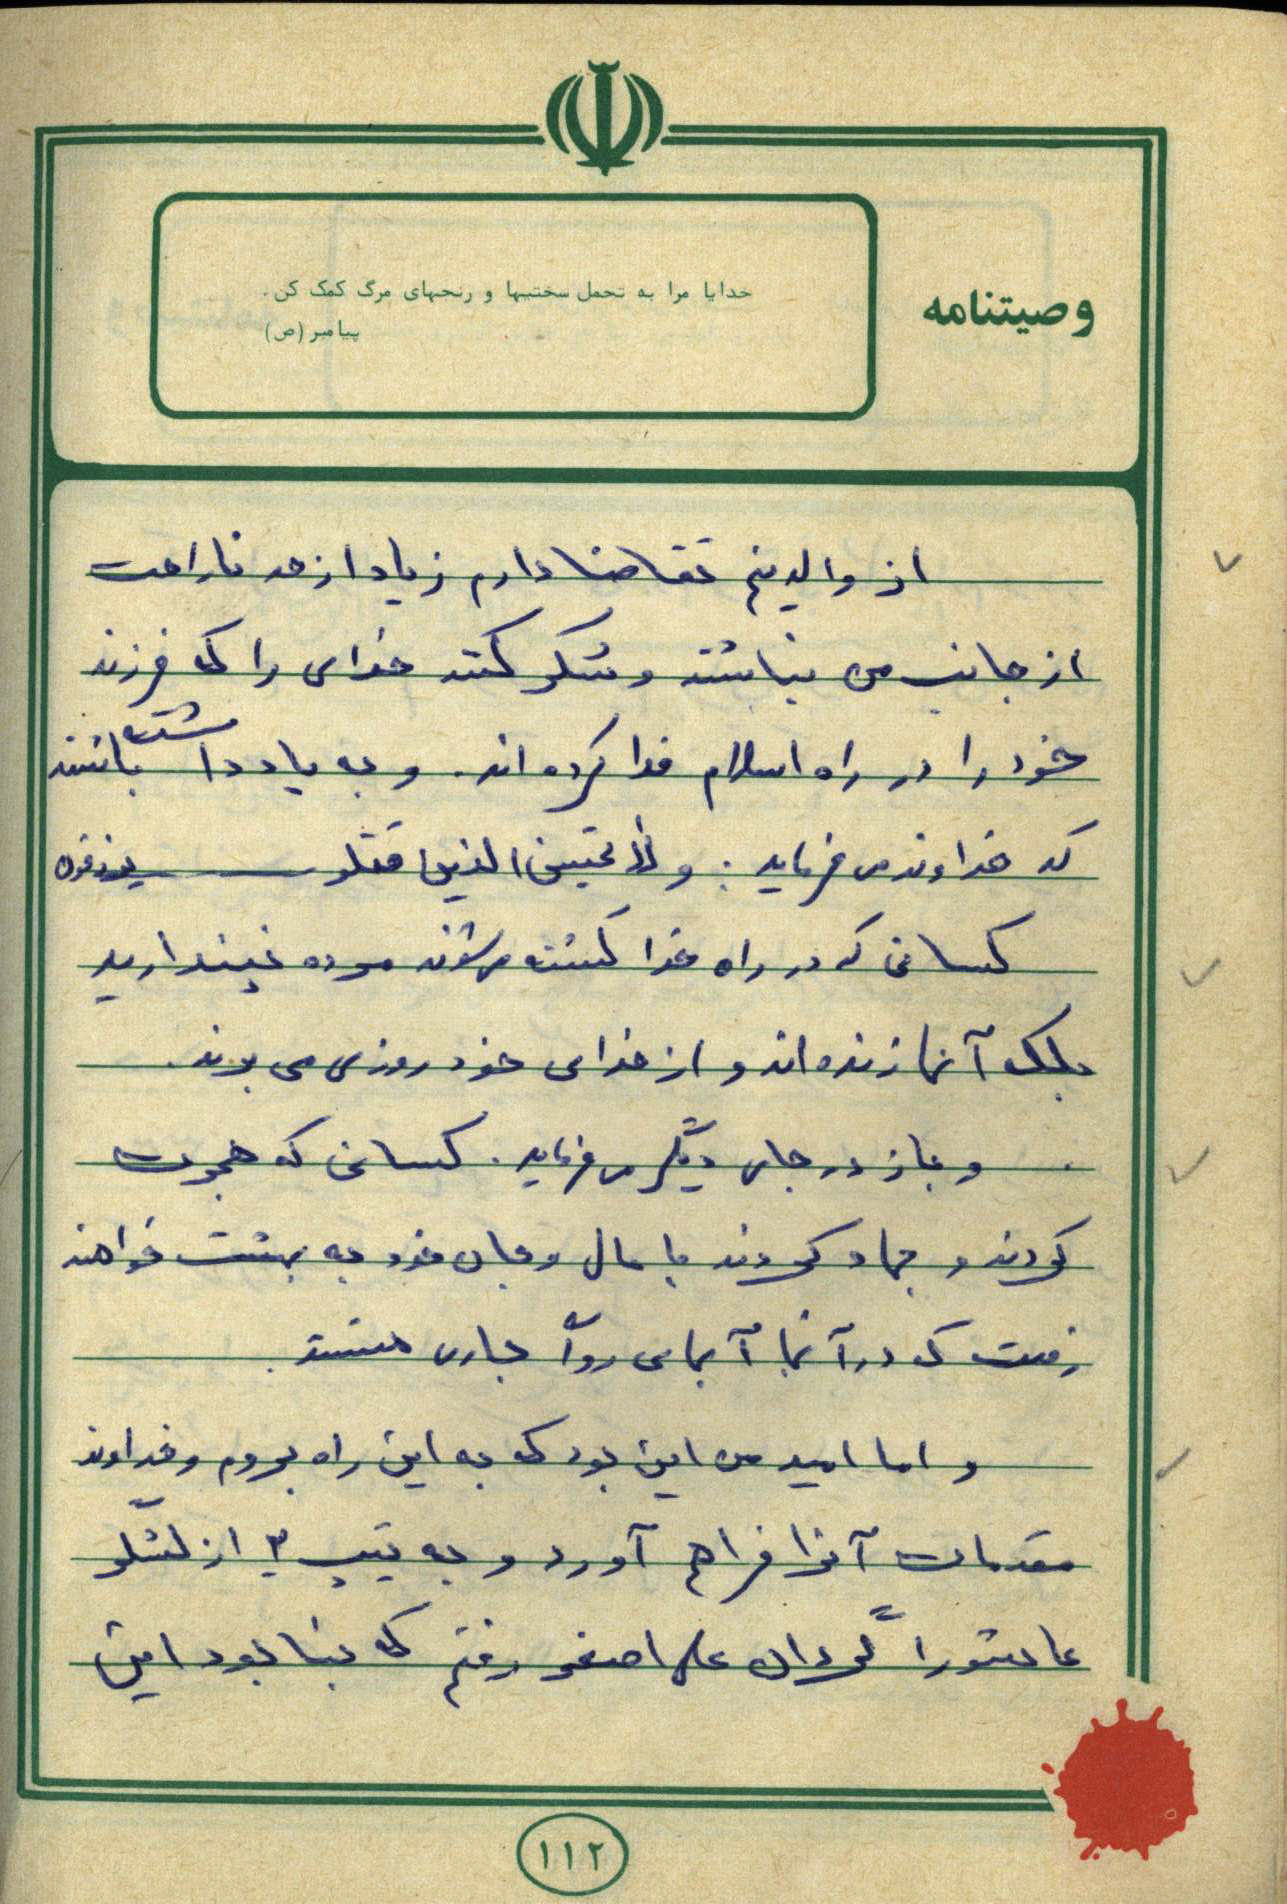 وصیتنامه
خدایا مرا به تحمل سختیها و رنجهای مرگ کمک کن.
پیامبر (ص)
از والدینم تقاضا دارم زیاد از حد ناراحت
از جانب من نباشند و شکر کنند خدای را که فرزند
خود را در راه اسلام فدا کرده اند. و به یاد داشته باشند
که خداوند می فرماید: ولا تحسبن الذین قتلو یرزقون
کسانی که در راه خدا کشته می شوند مرده نپندارید
بلکه آنها زنده اند و از خدای خود روزی می برند.
و باز در جای دیگر می فرماید. کسانی که هجرت
کردند و جهاد کردند با مال و جان خود به بهشت خواهند
رفت که در آنجا آبهای روان جاری هستند.
و اما امید من این بود که به این راه بروم و خداوند
مقدمات آنرا فراهم آورد و به تیپ ۳ از لشگر
عاشورا گردان علی اصغر رفتم که بنا بود این
۱۱۲